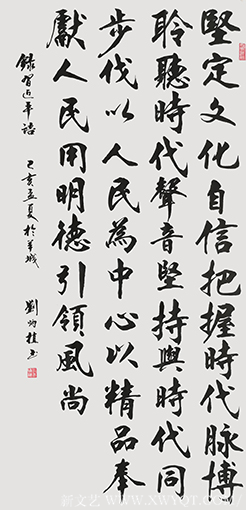 堅定文化自信把握時代脉博
聆聽時代聲音堅持與時代同
步伐以人民為中心以精品奉
獻人民用明德引領風尚
錄習近平語
己亥孟夏於羊城
劉炳桂书
新文艺 WWW.XWYQT.COM